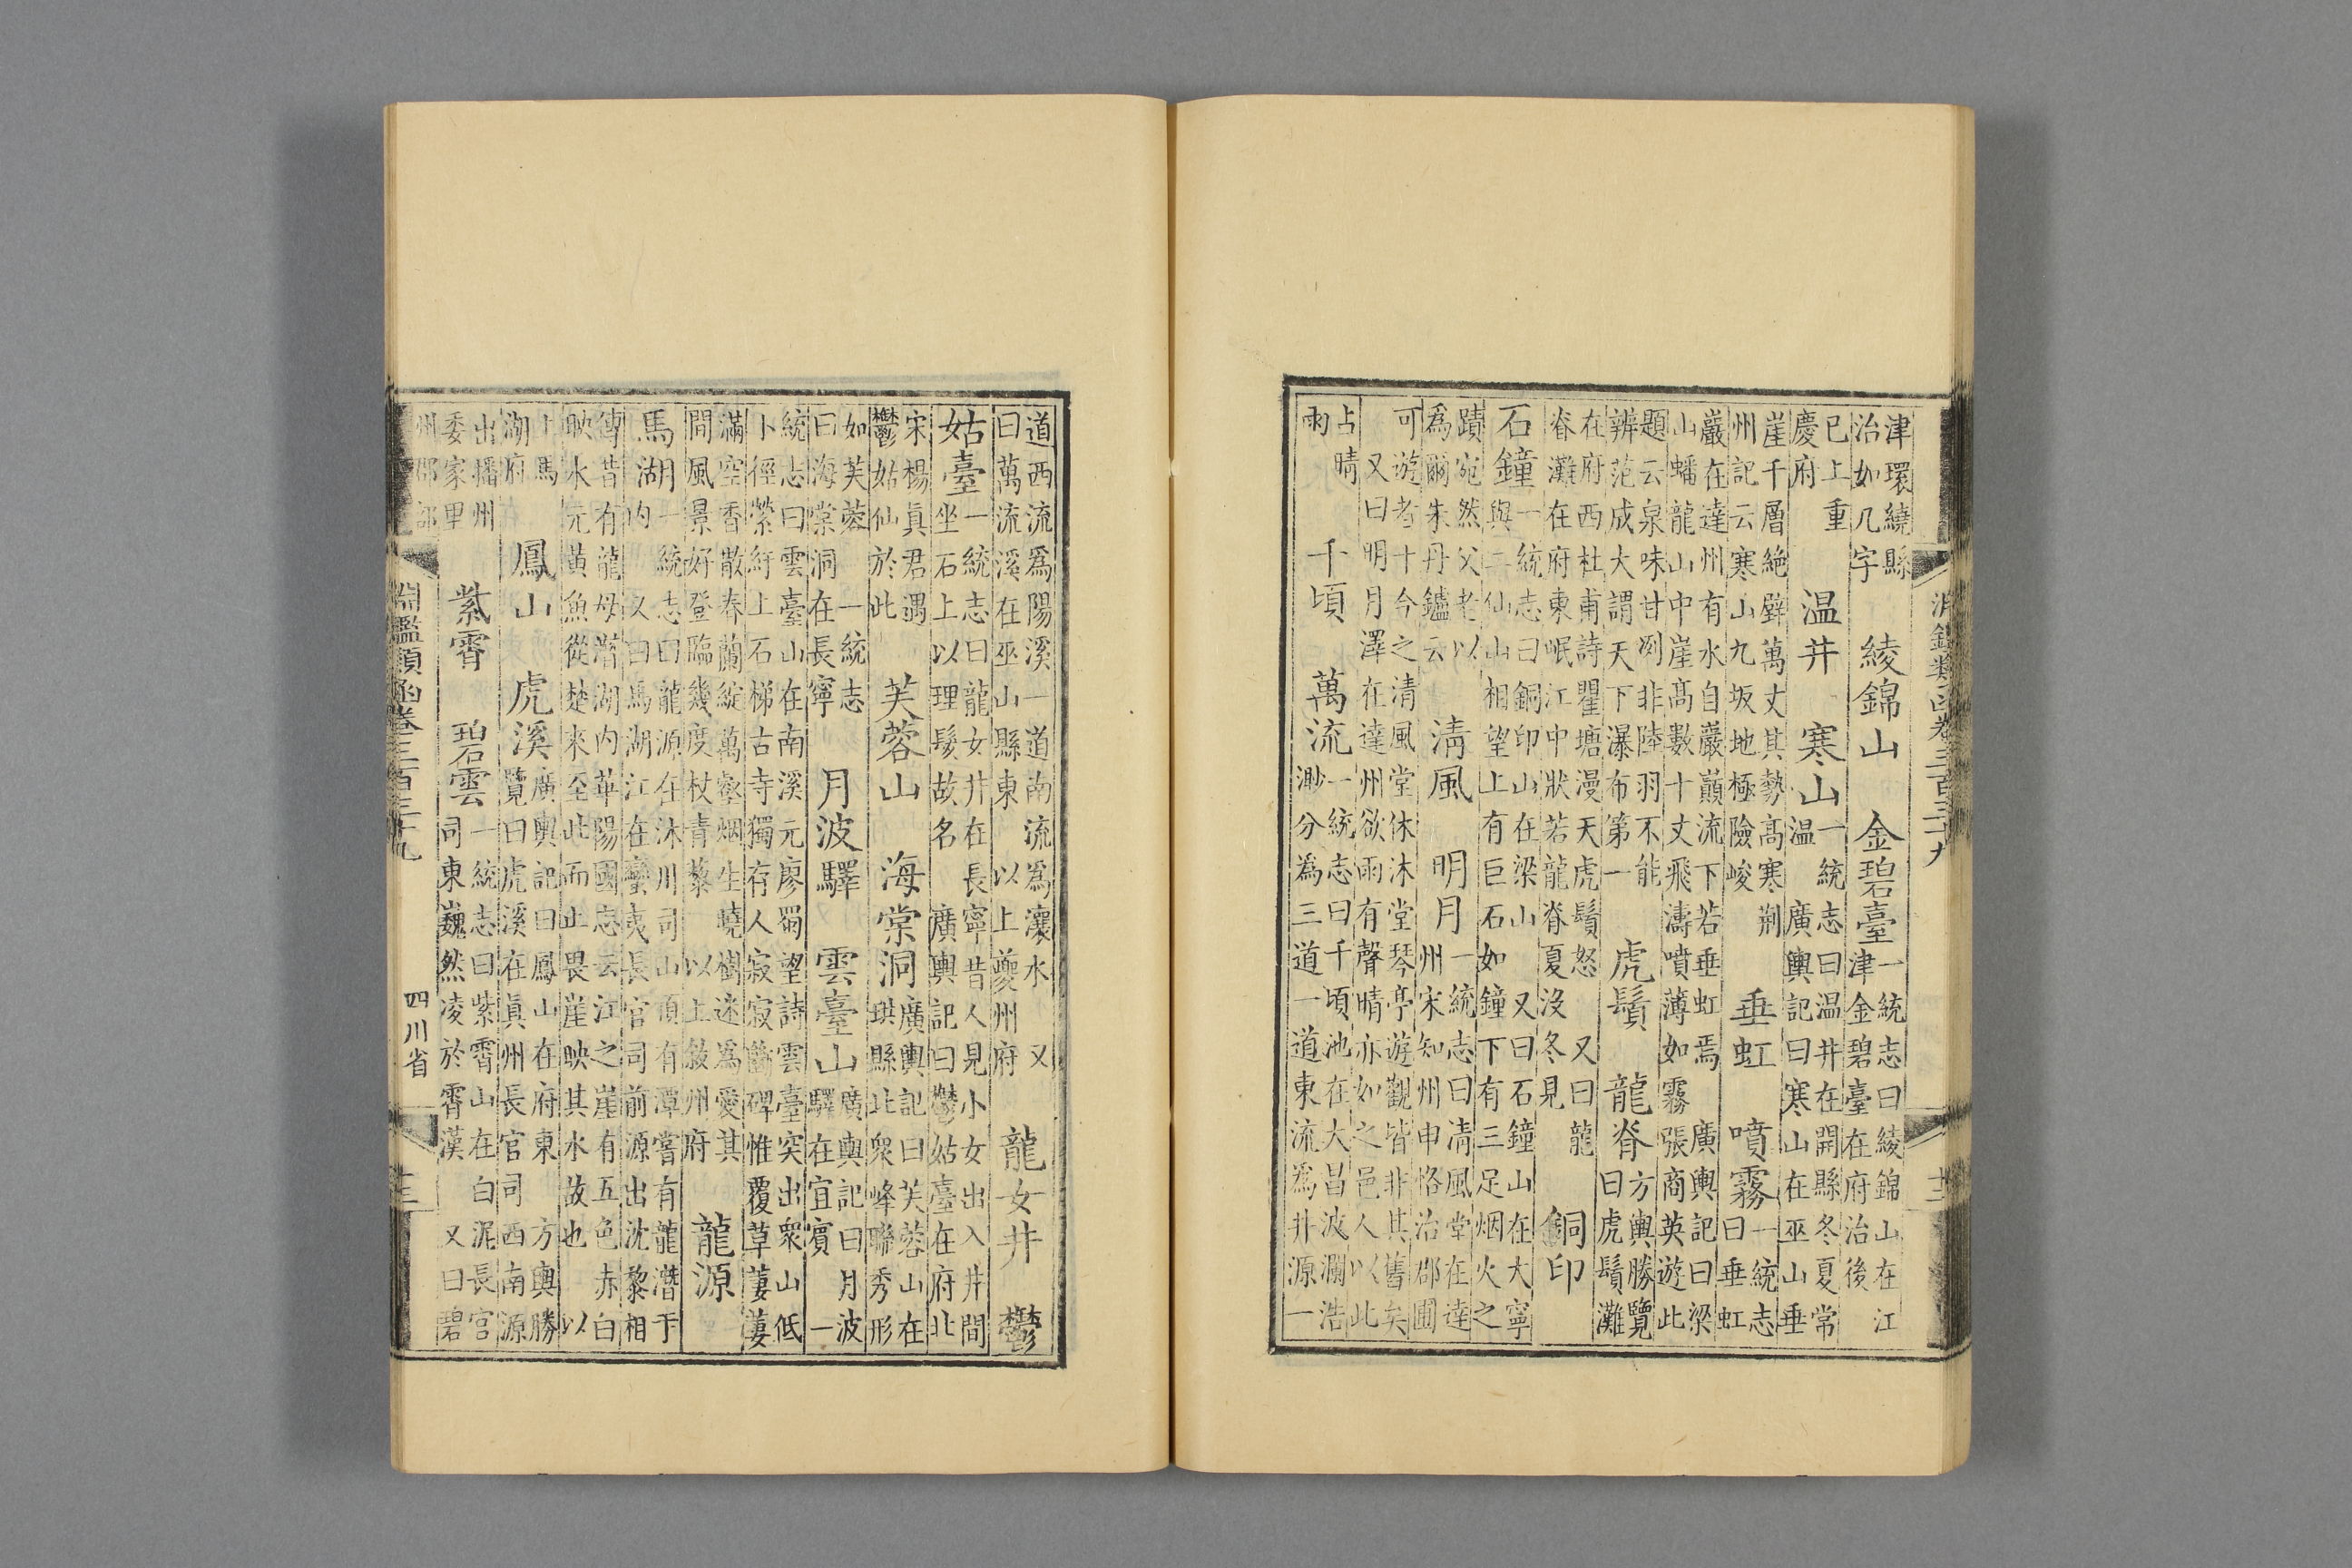 津環繞縣治如几字 綾錦山 金碧臺 一統志曰綾錦山在江津金碧臺在府治後
已上重慶府 温井 寒山 一統志曰温井在開縣冬夏常温 廣輿記曰寒山在巫山垂
崖千層絶壁萬丈其勢高寒荆州記云寒山九坂地極險峻 垂虹 噴霧 一統志曰垂虹
巖在達州有水自巖巔流下若垂虹焉 廣輿記曰梁山蟠龍山中崖高數十丈飛濤噴薄如霧張商英遊此
題云泉味甘冽非陸羽不能辨范成大謂天下瀑布第一 虎鬚 龍脊 方輿勝覽曰虎鬚灘
在府西杜甫詩瞿塘漫天虎鬚怒 又曰龍脊灘在府東岷江中狀若龍脊夏沒冬見 銅印
石鐘 一統志曰銅印山在梁山 又曰石鐘山在大寧與二仙山相望上有巨石如鐘下有三足烟火之
蹟宛然父老以為爾朱丹鑪云 清風 明月 一統志曰清風堂在達州宋知州申恪治郡圃
可遊者十今之清風堂休沐堂琴亭遊觀皆非其舊矣 又曰明月澤在達州欲雨有聲晴亦如之邑人以此
占晴雨 千頃 萬流 一統志曰千頃池在大昌波瀾浩渺分為三道一道東流為井源一
道西流為陽溪一道南流為瀼水 又曰萬流溪在巫山縣東 以上夔州府 龍女井 鬱
姑臺 一統志曰龍女井在長寧昔人見小女出入井間坐石上以理髮故名 廣輿記曰鬱姑臺在府北
宋楊眞君遇鬱姑仙於此 芙蓉山 海棠洞 廣輿記曰芙蓉山在珙縣北衆峰聯秀形
如芙蓉 一統志曰海棠洞在長寧 月波驛 雲臺山 廣輿記曰月波驛在宜賓 一
統志曰雲臺山在南溪元廖蜀望詩雲臺突出衆山低卜徑縈紆上石梯古寺獨存人寂寂斷碑惟覆草萋萋
滿空香散春蘭綻萬壑烟生曉樹迷為愛其間風景好登臨幾度杖青藜 以上敘州府 龍源
馬湖 一統志曰龍源在沐川司山頂有潭嘗有龍潛于内 又曰馬湖江在蠻夷長官司前源出沈黎相
傳昔有龍母潛湖内華陽國志云江之崖有五色赤白映水元黄魚從楚來至此而止畏崖映其水故也 以
上馬湖府 鳳山 虎溪 廣輿記曰鳳山在府東 方輿勝覽曰虎溪在眞州長官司西南源
出播州委家里 紫霄 碧雲 一統志曰紫霄山在白泥長官司東巍然凌於霄漢 又曰碧
州郡部
淵鑑類函卷三百三十九
四川省
十三